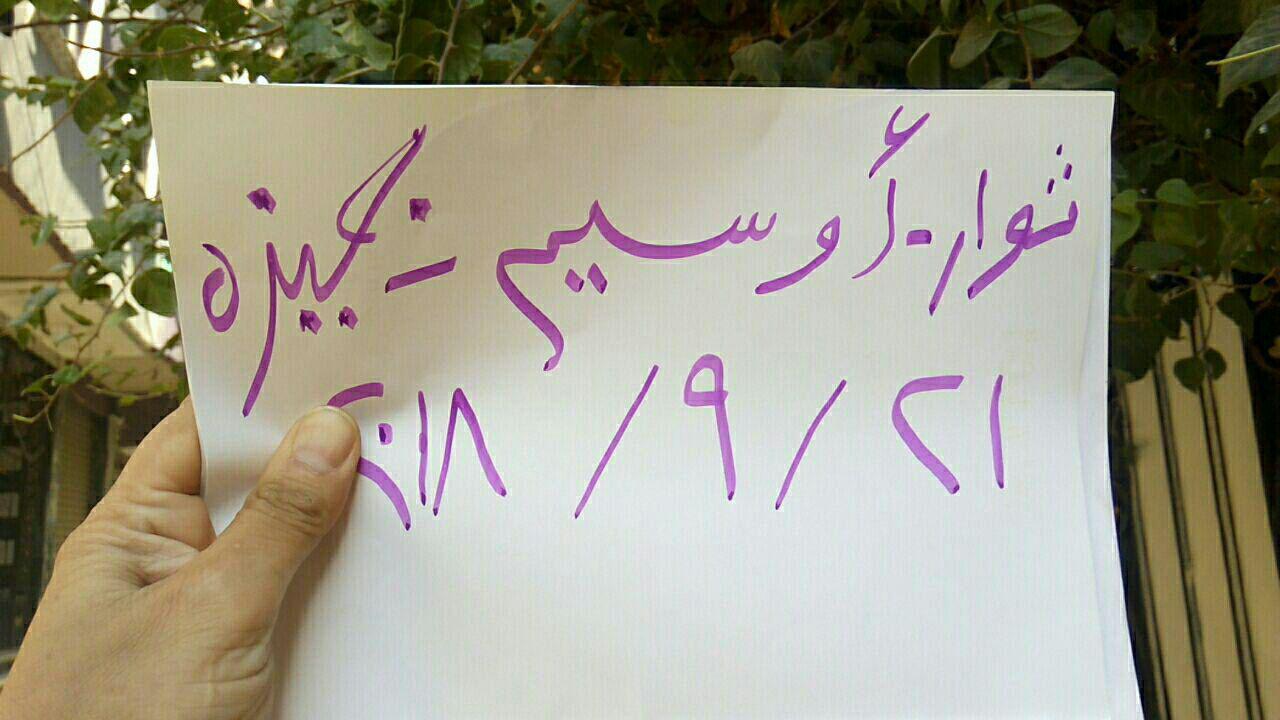 ثوار - أوسيم - جيزه
٢١ / ٩ / ٢٠١٨